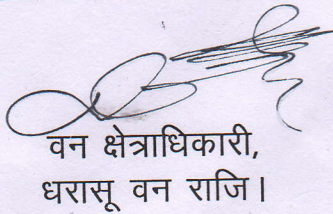 वन क्षेत्राधिकारी,
धरासू वन राजि।